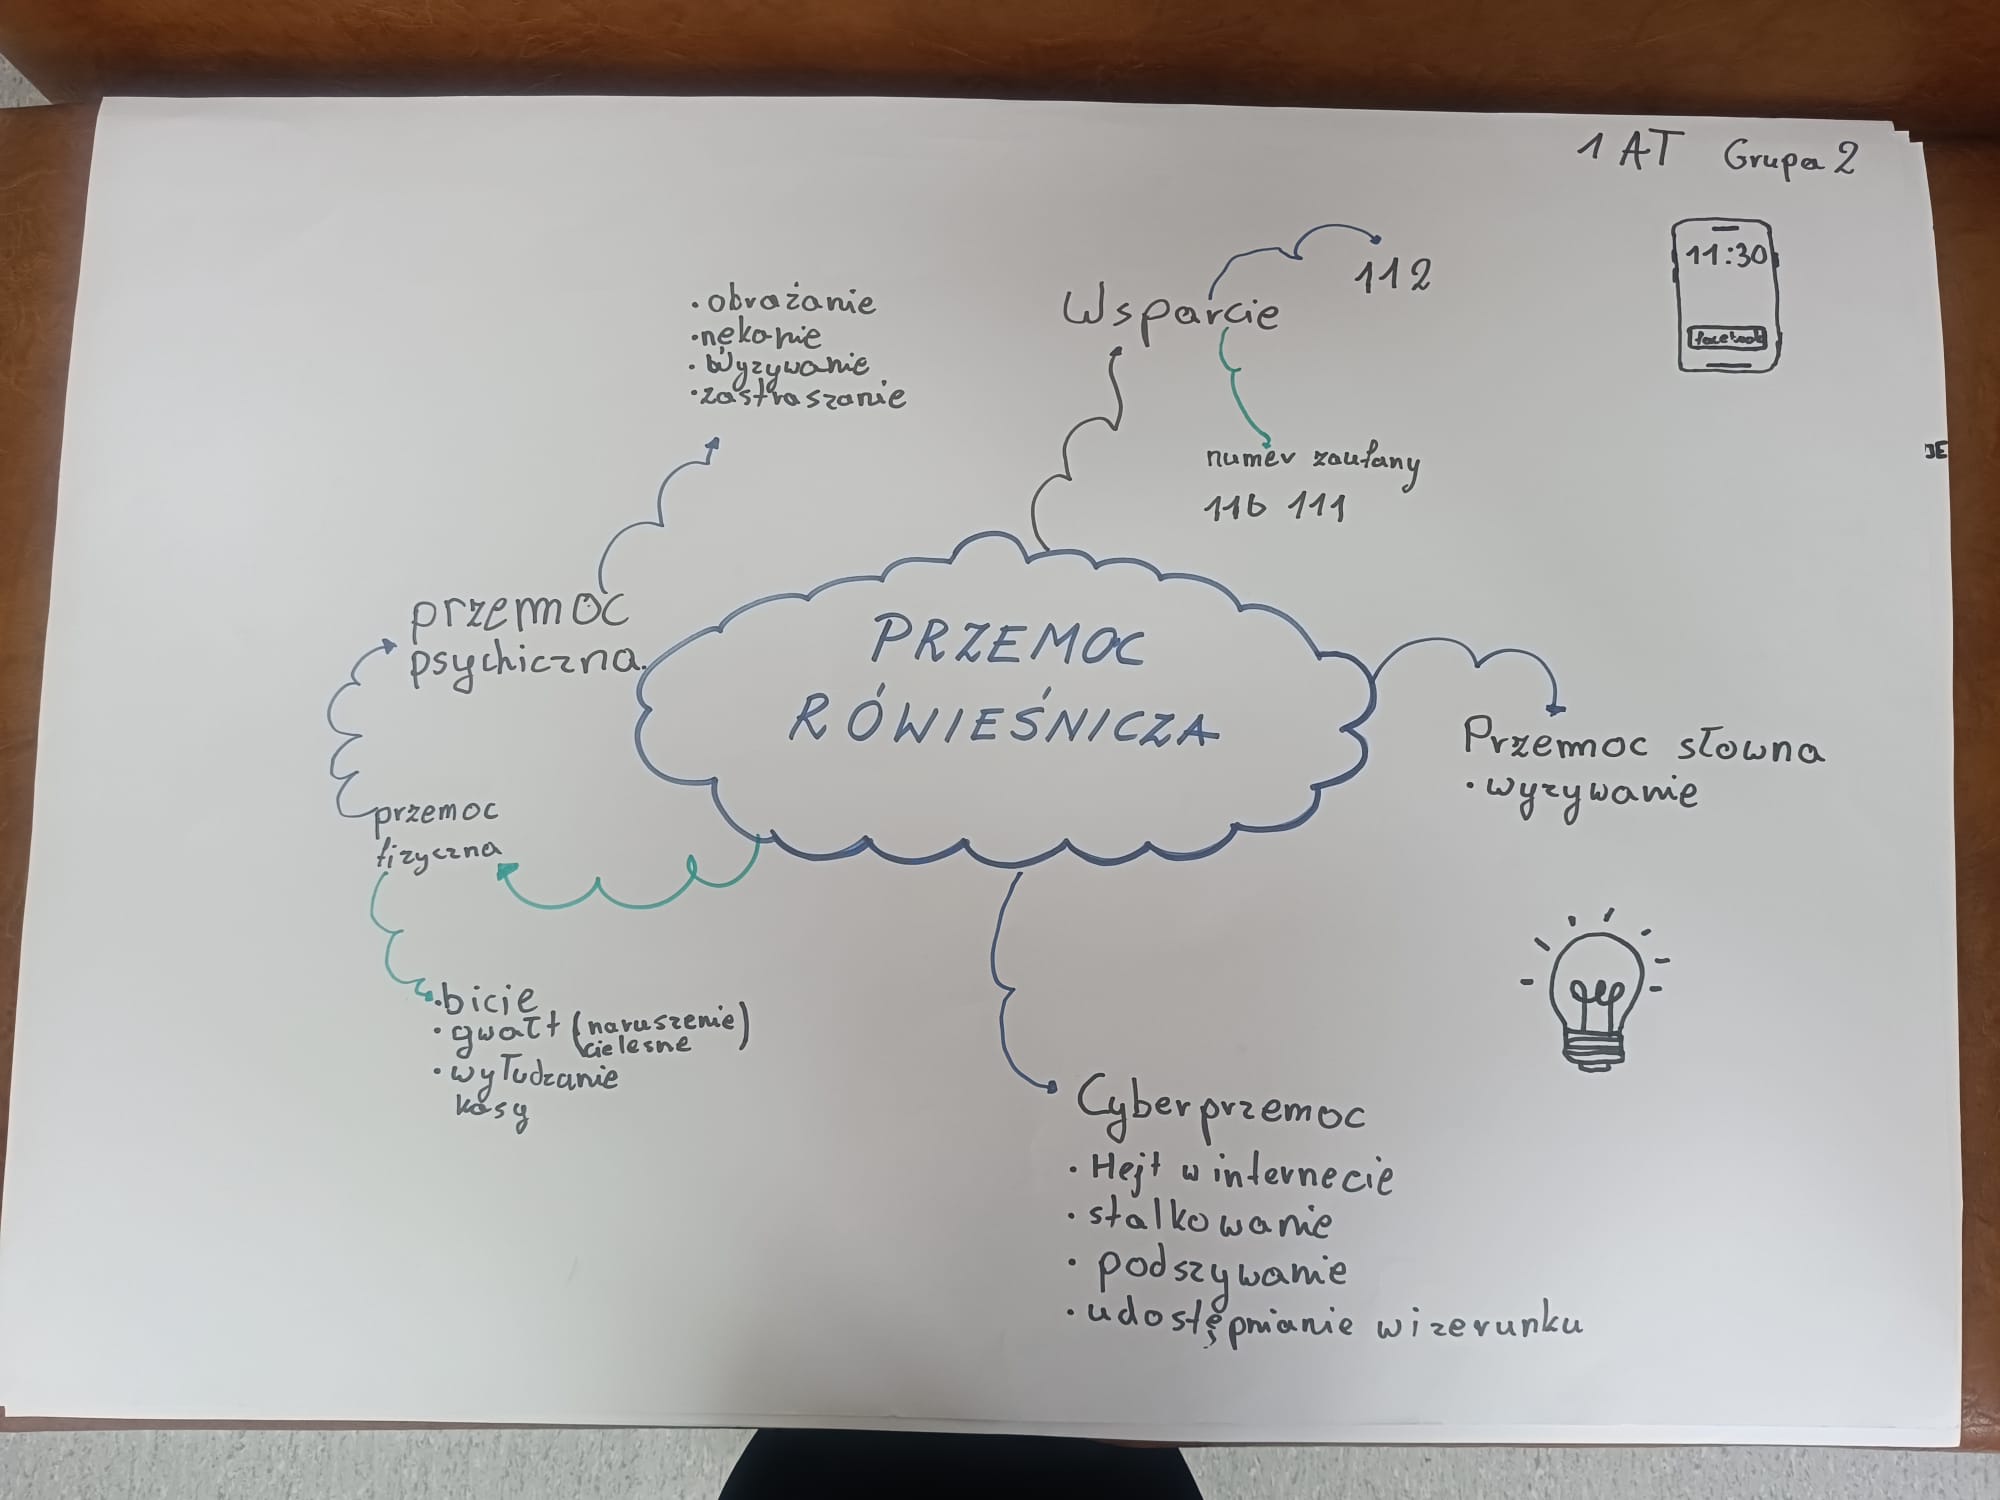 1 AT Grupa 2
11:30
facebook
112
Wsparcie
numer zaufany
116 111
• obrażanie
• nękanie
• Wyzywanie
• zastraszanie
przemoc
psychiczna.
PRZEMOC
RÓWIEŚNICZA
Przemoc słowna
• wyzywanie
przemoc
fizyczna
• bicie
• gwałt (naruszenie
cielesne)
• wyłudzanie
kasy
Cyberprzemoc
• Hejt w internecie
• stalkowanie
• podszywanie
• udostępnianie wizerunku
JE